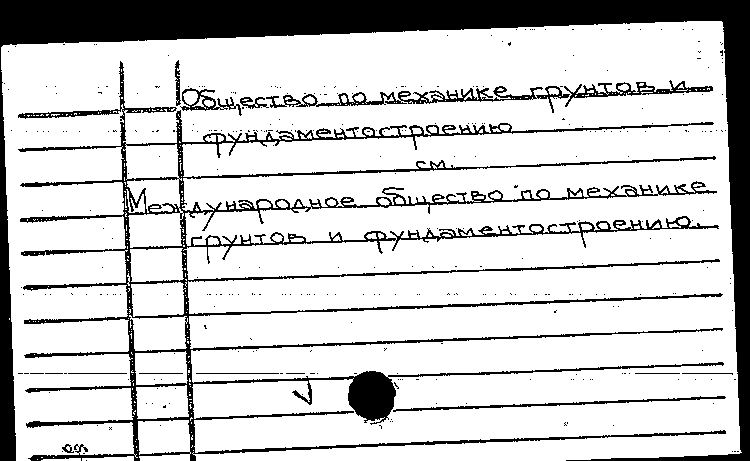 Общество по механике грунтов и
фундаментостроению
см.
Международное общество по механике
грунтов и фундаментостроению.